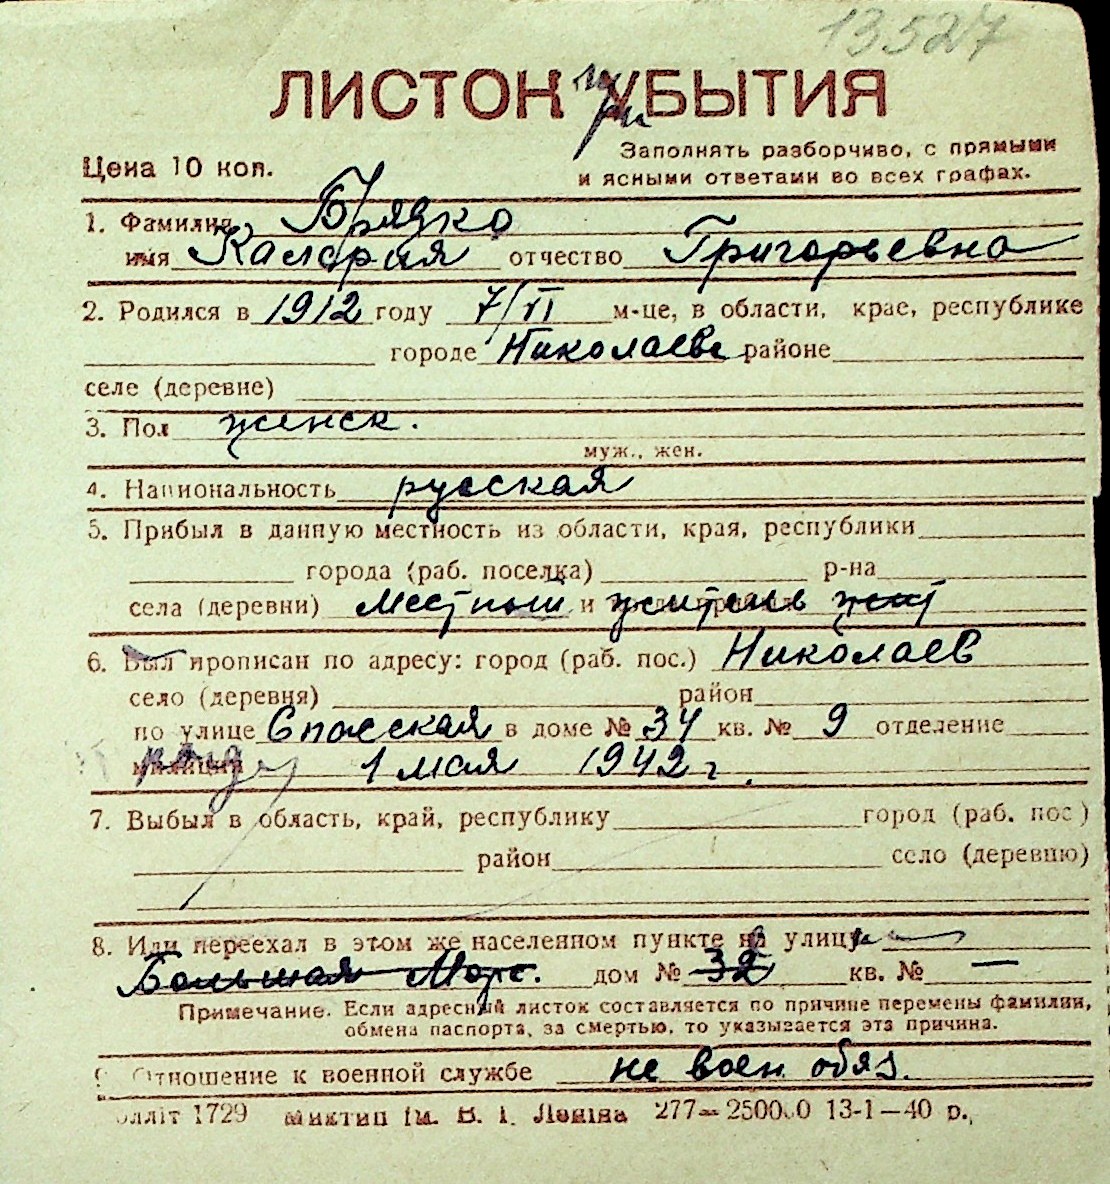 13527
ЛИСТОК УБЫТИЯ
при
Цена 10 коп.
Заполнять разборчиво, с прямыми
и ясными ответами во всех графах.
1. Фамилия Брядко
имя Калерия отчество Григорьевна
2. Родился в 1912 году 7/VI м-це, в области, крае, республике
городе Николаеве районе
селе (деревне)
3. Пол женск.
муж., жен.
4. Национальность русская
5. Прибыл в данную местность из области, края, республики
города (раб. поселка) р-на
села (деревни) Местный и житель жит
6. Был прописан по адресу: город (раб. пос.) Николаев
село (деревня) район
по улице Спасская в доме № 34 кв. № 9 отделение
милиции 1 мая 1942 г.
7. Выбыл в область, край, республику город (раб. пос.)
район село (деревню)
8. Или переехал в этом же населенном пункте на улицу
Большая Морс. дом № 32 кв. № —
Примечание. Если адресный листок составляется по причине перемены фамилии,
обмена паспорта, за смертью, то указывается эта причина.
9. Отношение к военной службе не воен. обяз.
олліт 1729 Миктип ім. В. І. Леніна 277—250000 13-1—40 р.,